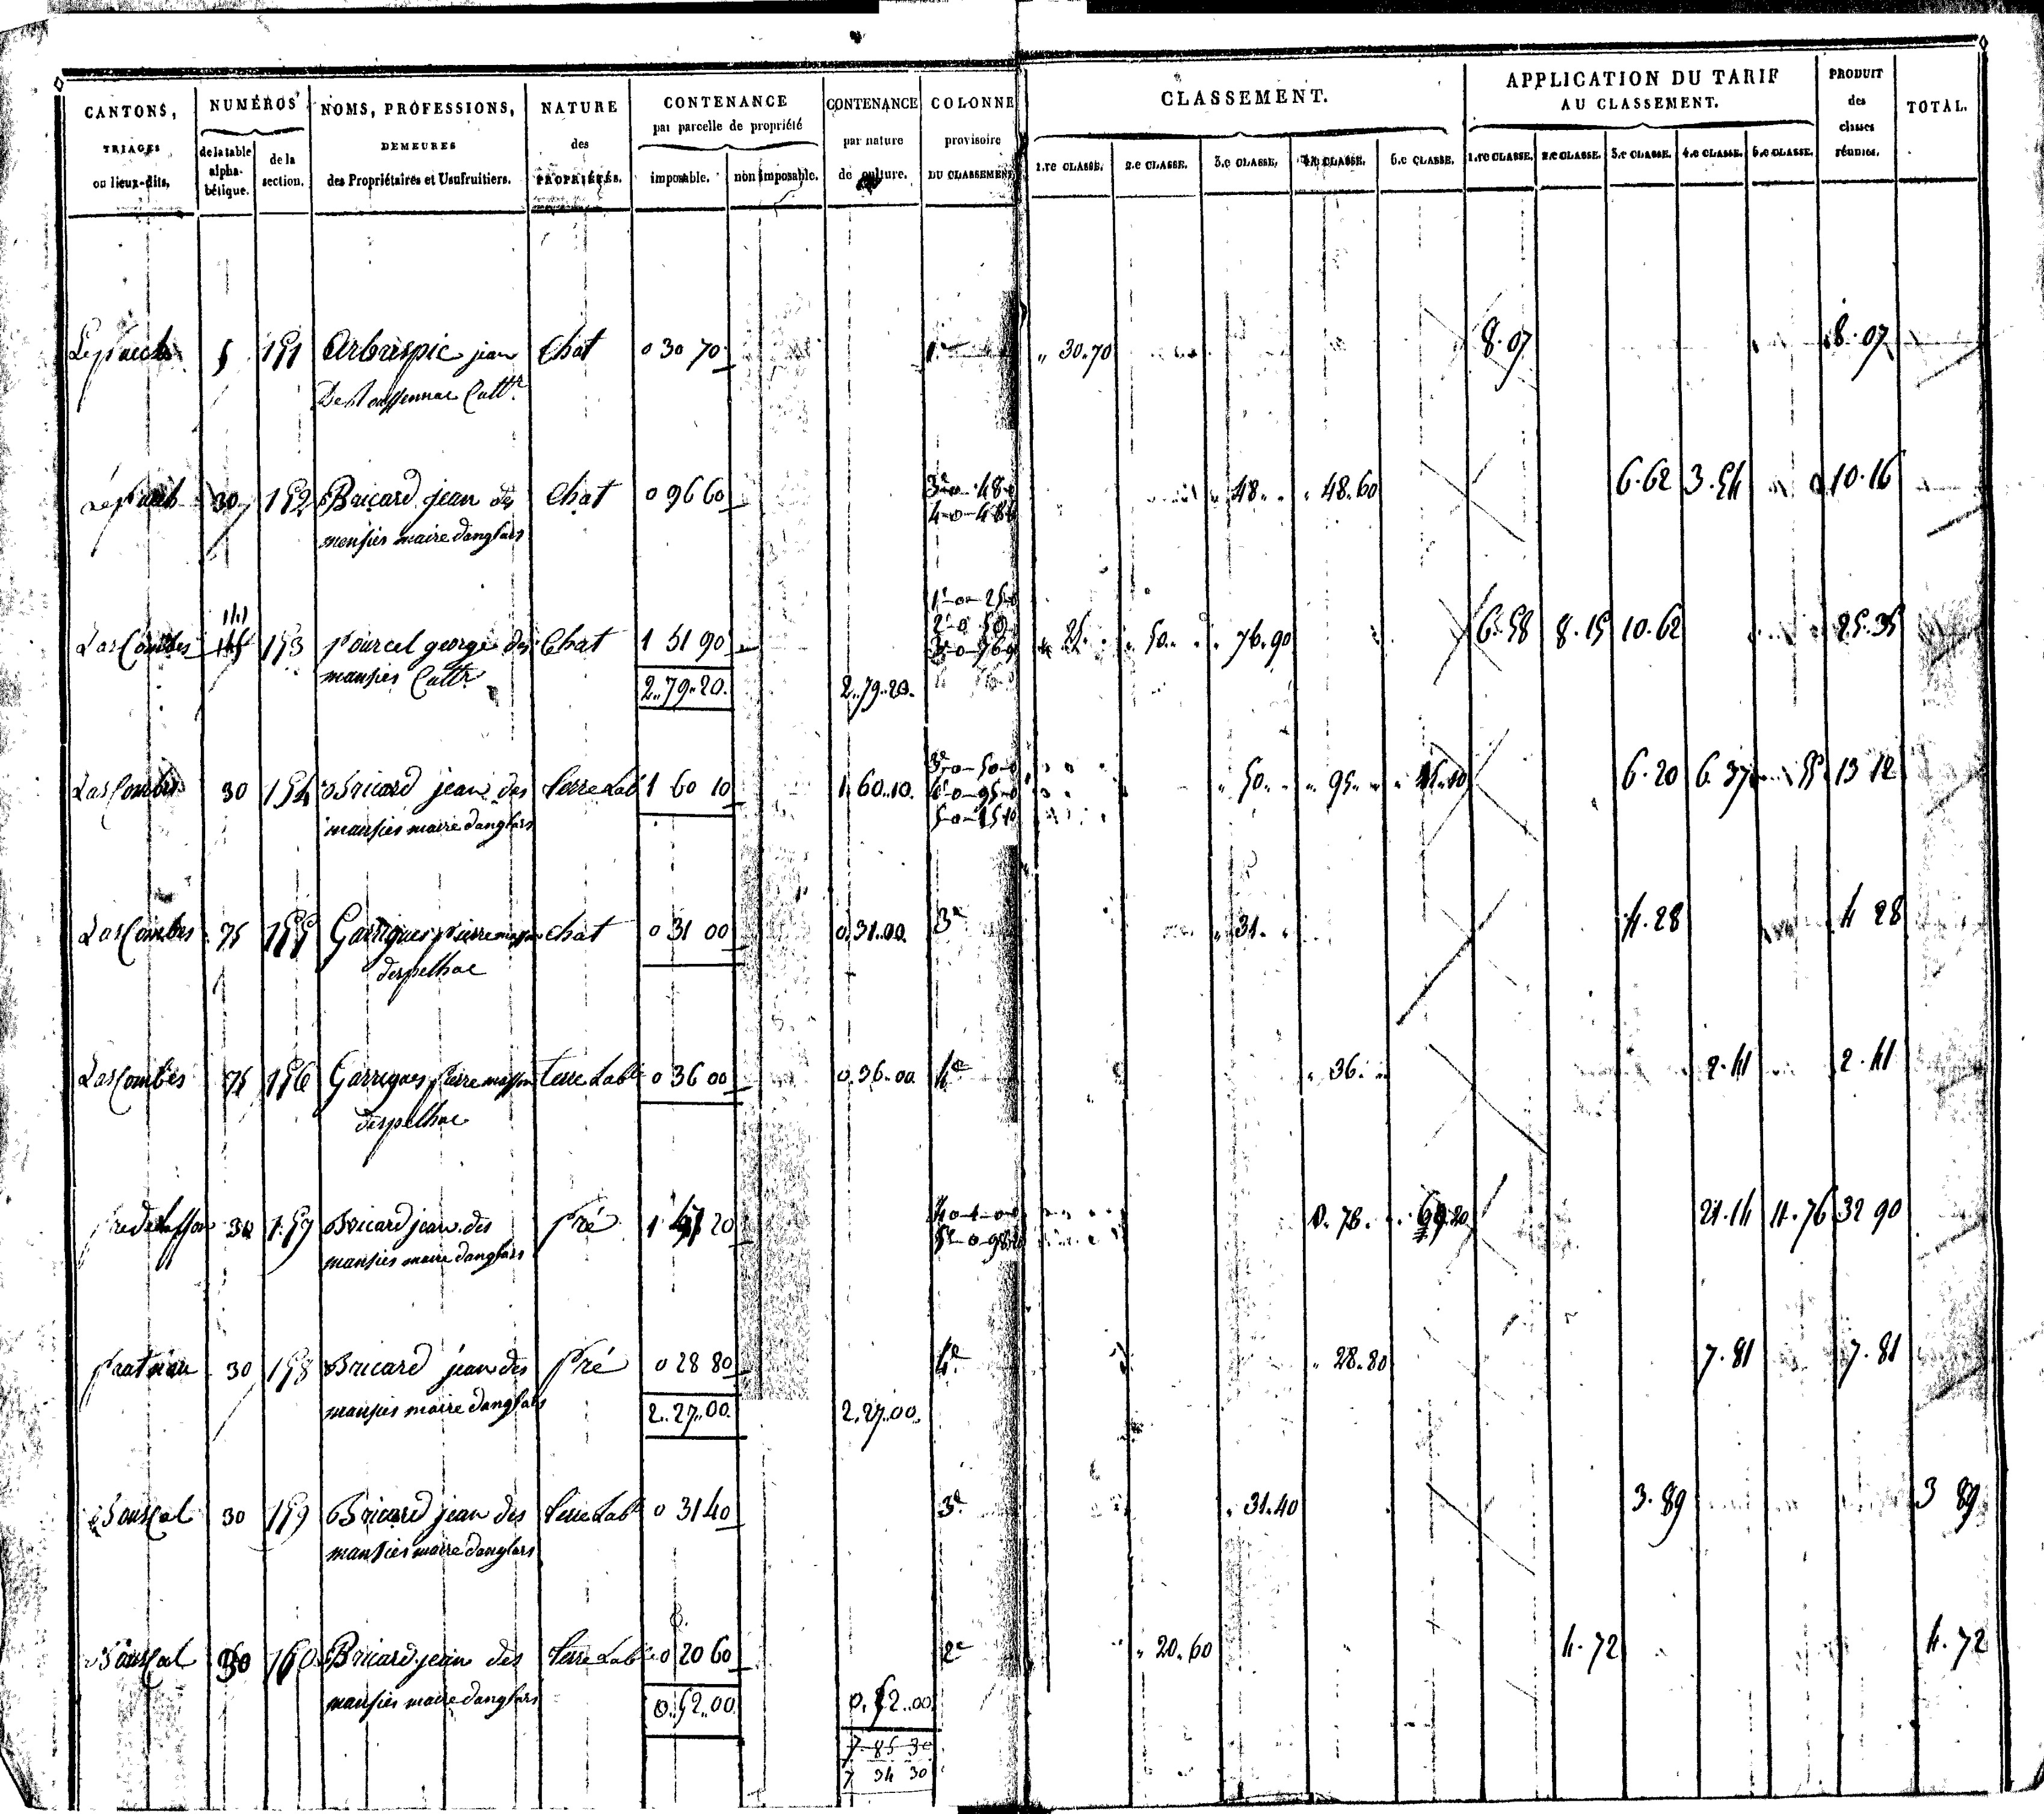 CANTONS, TRIAGES ou lieux-dits, NUMÉROS de la table alphabétique. de la section. NOMS, PROFESSIONS, DEMEURES des Propriétaires et Usufruitiers. NATURE des PROPRIÉTÉS. CONTENANCE par parcelle de propriété imposable. non imposable. CONTENANCE par nature de culture. COLONNE provisoire DU CLASSEMENT
CLASSEMENT. 1.re CLASSE. 2.e CLASSE. 3.e CLASSE. 4.e CLASSE. 5.e CLASSE. APPLICATION DU TARIF AU CLASSEMENT. 1.re CLASSE. 2.e CLASSE. 3.e CLASSE. 4.e CLASSE. 5.e CLASSE. PRODUIT des classes réunies. TOTAL.
5 151 Arbrespic jean Chat 0 30 70 1e „ 30.70 8.07 8.07
Cultr
30 152 Bricard jean des Chat 0 96 60 3e 0 48 48 48.60 6.62 3.54 10.16
mansies maire d'anglars 4 0 48 6
141 1e 0 25 0
Las Combes 153 Pourcel george des Chat 1 51 90 2e 0 50 3e 0 76 9 25 50 76.90 6.58 8.15 10.62 25.35
mansies Cultr
2..79..20. 2..79..20.
Las Combes 30 154 Bricard jean des terre Lab 1 60 10 1.60.10. 3e 0 50 0 50 95 15.10 6.20 6.37 55 13 12
mansies maire d'anglars 4 0 95 0
5 0 15 10
Las Combes 75 155 Garrigues pierre masson chat 0 31 00 0.31.00. 3e 31 4.28 4 28
despelhac
Las Combes 75 156 Garrigues pierre masson terre Labe 0 36 00 0.36.00. 4e 36 2.41 2.41
despelhac
30 157 Bricard jean des pré 1 20 4 0 0.78. 69.20 21.14 11.76 32 90
mansies maire d'anglars 5e 0 98 20
30 158 Bricard jean des Pré 0 28 80 4e 28.80 7.81 7.81
mansies maire d'anglars 2..27..00. 2.27.00.
Bouscal 30 159 Bricard jean des terre Labe 0 31 40 3e 31.40 3.89 3 89
mansies maire d'anglars
Bouscal 30 160 Bricard jean des terre Labe 0 20 60 2e 20.60 4.72 4.72
mansies maire d'anglars 0.52..00. 0.52..00.
7 85 30
7 34 30